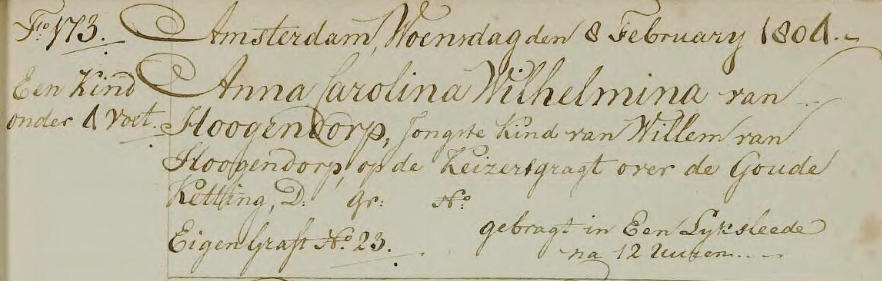 Fo. 173.
Amsterdam, Woensdag den 8 February 1804.
Een Kind
onder 4 voet.
Anna Carolina Wilhelmina van
Hoogendorp, Jongste Kind van Willem van
Hoogendorp, op de Keizersgragt over de Goude
Ketting, D: gr: No.
Eigen Graft No. 23.
gebragt in Een Lyksleede
na 12 Uuren.